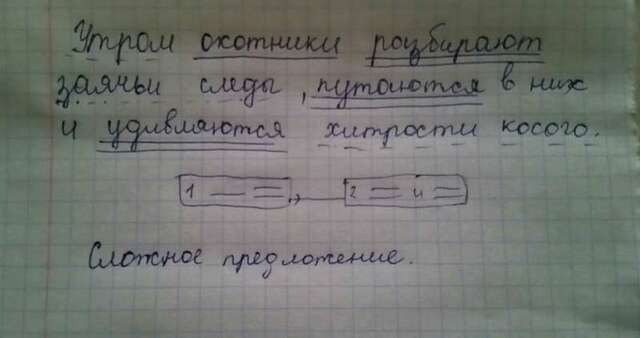 Утром охотники разбирают
заячьи следы, путаются в них
и удивляются хитрости косого.
1 2 и
Сложное предложение.